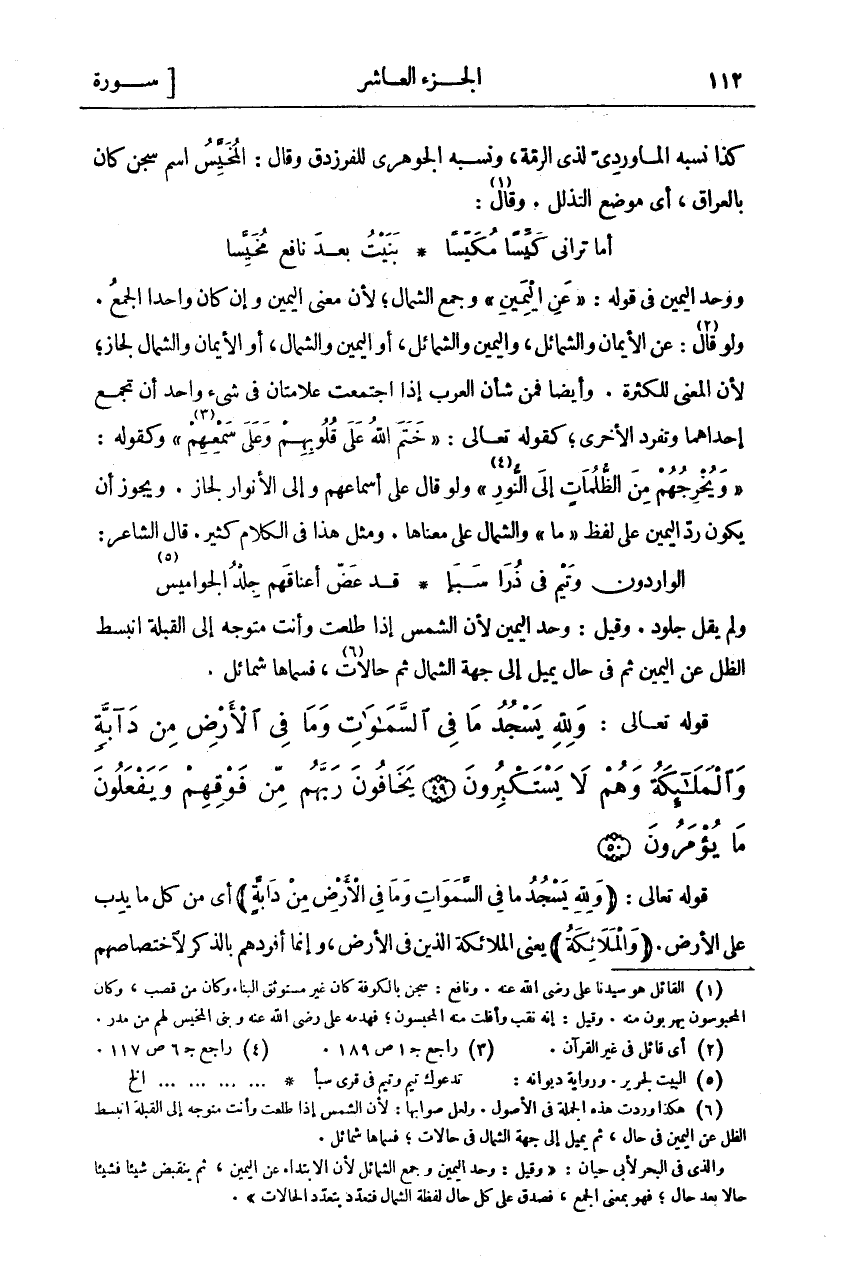 ١١٢ الجـزء العـاشر [ سـورة
كذا نسبه المـاوردىّ لذى الرمّة، ونسـبه الجوهرى للفرزدق وقال : المُخَيِّسُ اسم سجن كان
بالعراق ، أى موضع التذلل . وقال(١) :
أما ترانى كَيِّسًا مُكَيِّسًا * بَنَيْتُ بعـدَ نافع مُخَيِّسا
ووحد اليمين فى قوله : « عَنِ الْيَمِينِ » وجمع الشمال؛ لأن معنى اليمين وإن كان واحدا الجمعُ .
ولو قال(٢) : عن الأيمان والشمائل، واليمين والشمائل، أو اليمين والشمال، أو الأيمان والشمال لجاز؛
لأن المعنى للكثرة . وأيضا فمن شأن العرب إذا اجتمعت علامتان فى شىء واحد أن تجمع
إحداهما وتفرد الأخرى؛ كقوله تعـالى : « خَتَمَ اللهُ عَلَى قُلُوبِهِـمْ وَعَلَى سَمْعِهِمْ(٣) » وكقوله :
« وَيُخْرِجُهُمْ مِنَ الظُّلُمَاتِ إِلَى النُّورِ(٤) » ولو قال على أسماعهم وإلى الأنوار لجاز . ويجوز أن
يكون ردّ اليمين على لفظ « ما » والشمال على معناها . ومثل هذا فى الكلام كثير. قال الشاعر:
الواردون وتَيْم فى ذُرَا سَـبَإ * قـد عَضّ أعناقَهم جِلْدُ الجواميس(٥)
ولم يقل جلود . وقيل : وحد اليمين لأن الشمس إذا طلعت وأنت متوجه إلى القبلة انبسط
الظل عن اليمين ثم فى حال يميل إلى جهة الشمال ثم حالات(٦) ، فسماها شمائل .
قوله تعـالى : وَلِلَّهِ يَسْجُدُ مَا فِى ٱلسَّمَـٰوَٰتِ وَمَا فِى ٱلْأَرْضِ مِن دَآبَّةٍ
وَٱلْمَلَـٰٓئِكَةُ وَهُمْ لَا يَسْتَكْبِرُونَ ﴿٤٩﴾ يَخَافُونَ رَبَّهُم مِّن فَوْقِهِمْ وَيَفْعَلُونَ
مَا يُؤْمَرُونَ ﴿٥٠﴾
قوله تعالى : ﴿ وَلِلهِ يَسْجُدُ ما فِى السَّمَوَاتِ وَمَا فِى الْأَرْضِ مِنْ دَابَّةٍ ﴾ أى من كل ما يدِب
على الأرض. ﴿ وَالْمَلَائِكَةُ ﴾ يعنى الملائكة الذين فى الأرض، وإنما أفردهم بالذكر لاختصاصهم
(١) القائل هو سيدنا على رضى الله عنه . ونافع : سجن بالكوفة كان غير مستوثق البناء وكان من قصب ، وكان
المحبوسون يهربون منه . وقيل : إنه نقب وأفلت منه المحبسون؛ فهدمه على رضى الله عنه وبنى المخيس لهم من مدر .
(٢) أى قائل فى غير القرآن . (٣) راجع جـ ١ ص ١٨٩ . (٤) راجع جـ ٦ ص ١١٧ .
(٥) البيت لجرير . ورواية ديوانه : تدعوك تيم وتيم فى قرى سبأ * ... ... ... ... الخ
(٦) هكذا وردت هذه الجملة فى الأصول . ولعل صوابها : لأن الشمس إذا طلعت وأنت متوجه إلى القبلة انبسط
الظل عن اليمين فى حال ، ثم يميل إلى جهة الشمال فى حالات ؛ فسماها شمائل .
والذى فى البحر لأبى حيان : « وقيل : وحد اليمين وجمع الشمائل لأن الابتداء عن اليمين ، ثم ينقبض شيئا فشيئا
حالا بعد حال ؛ فهو بمعنى الجمع ، فصدق على كل حال لفظة الشمال فتعدّد بتعدّد الحالات » .